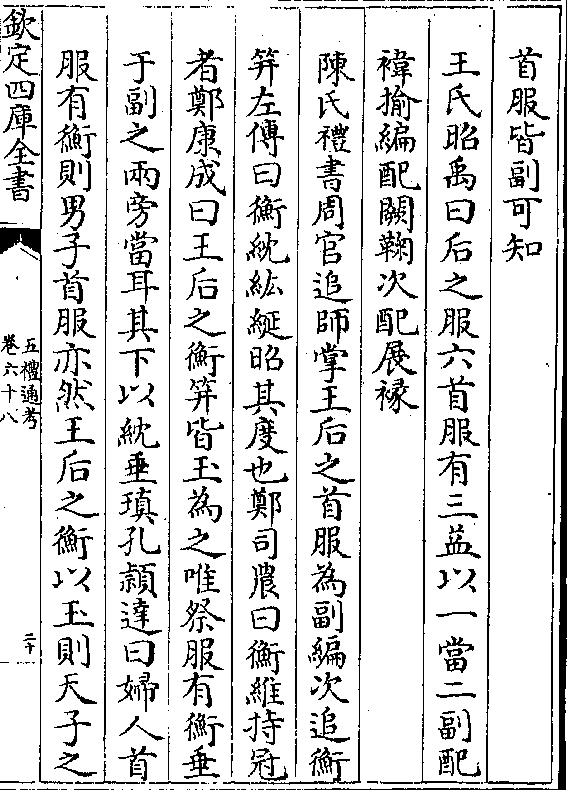 首服皆副可知
王氏昭禹曰后之服六首服有三葢以一當二副配
褘揄編配闕鞠次配展褖
陳氏禮書周官追師掌王后之首服為副編次追衡
笄左傳曰衡紞紘綖昭其度也鄭司農曰衡維持冠
者鄭康成曰王后之衡笄皆玉為之唯祭服有衡垂
于副之兩旁當耳其下以紞垂瑱孔頴達曰婦人首
服有衡則男子首服亦然王后之衡以玉則天子之
欽定四庫全書
五禮通考
卷六十八
二十